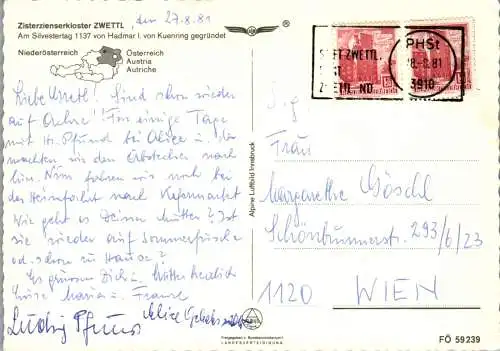 Zisterzienserkloster ZWETTL, den 27.8.81
Am Silvestertag 1137 von Hadmar I. von Kuenring gegründet
Niederösterreich
Österreich
Austria
Autriche
Liebe Gretl! Sind schon wieder
auf Achse! Für einige Tage
mit H. Pfund bei Alice u. da
machten wir den Abstecher nach
hier. Nun fahren wir noch bei
der Heimfahrt nach Kefermarkt
Wie geht es Deiner Mutter? Ist
sie wieder auf Sommerfrische
od. schon zu Hause?
Es grüssen Dich u. Mutter herzlich
Luise Maria u. Franz
Ludwig Pfund Alice
STIFT ZWETTL,
ZWETTL NÖ.
PHSt
8.-9.81
3910
Alpine Luftbild Innsbruck
Frau
Margarethe Göschl
Schönbrunnerst. 293/6/23
1120 WIEN
Freigegeben v. Bundesministerium f.
LANDESVERTEIDIGUNG
FÖ 59239